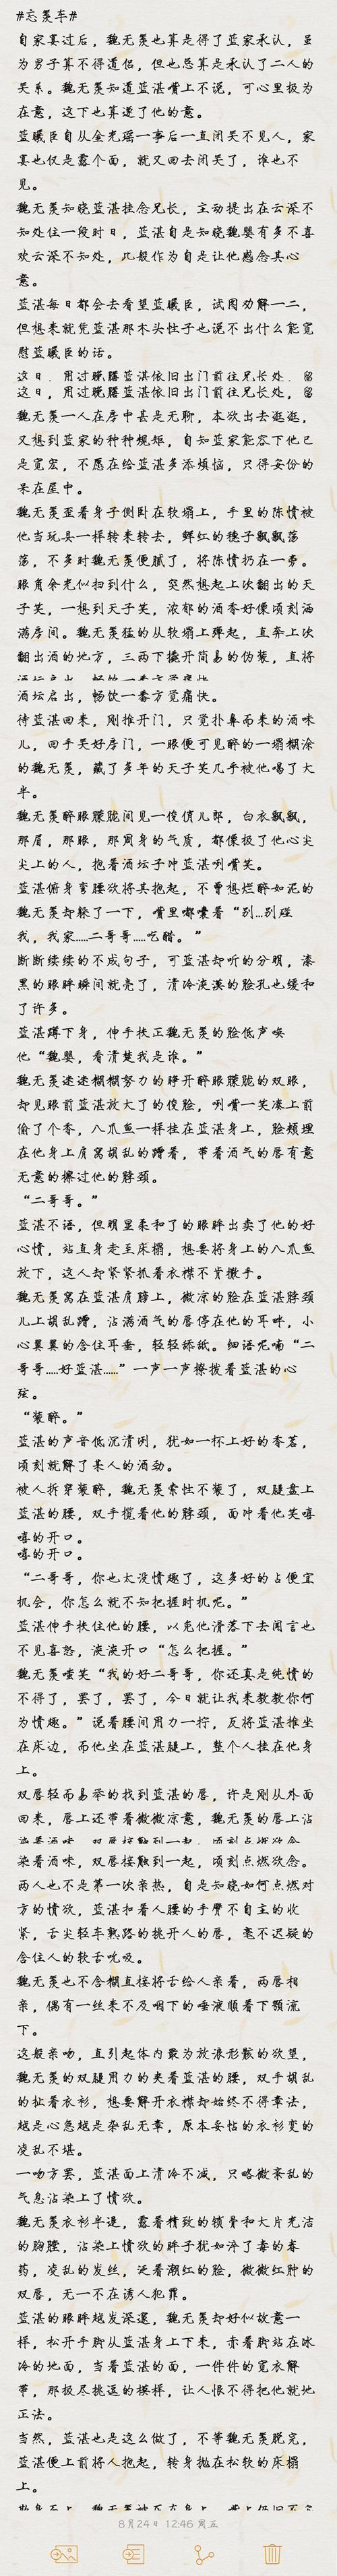 #忘羡车#
自家宴过后，魏无羡也算是得了蓝家承认，虽
为男子算不得道侣，但也总算是承认了二人的
关系。魏无羡知道蓝湛嘴上不说，可心里极为
在意，这下也算遂了他的意。
蓝曦臣自从金光瑶一事后一直闭关不见人，家
宴也仅是露个面，就又回去闭关了，谁也不
见。
魏无羡知晓蓝湛挂念兄长，主动提出在云深不
知处住一段时日，蓝湛自是知晓魏婴有多不喜
欢云深不知处，此般作为自是让他感念其心
意。
蓝湛每日都会去看望蓝曦臣，试图劝解一二，
但想来就凭蓝湛那木头性子也说不出什么能宽
慰蓝曦臣的话。
这日，用过晚膳蓝湛依旧出门前往兄长处，留
这日，用过晚膳蓝湛依旧出门前往兄长处，留
魏无羡一人在房中甚是无聊，本欲出去逛逛，
又想到蓝家的种种规矩，自知蓝家能容下他已
是宽宏，不愿在给蓝湛多添烦恼，只得安份的
呆在屋中。
魏无羡歪着身子侧卧在软塌上，手里的陈情被
他当玩具一样转来转去，鲜红的穗子飘飘荡
荡，不多时魏无羡便腻了，将陈情扔在一旁。
眼角余光似扫到什么，突然想起上次翻出的天
子笑，一想到天子笑，浓郁的酒香好像顷刻洒
满房间。魏无羡猛的从软塌上弹起，直奔上次
翻出酒的地方，三两下撬开简易的伪装，直将
酒坛启出，畅饮一番方觉痛快。
酒坛启出，畅饮一番方觉痛快。
待蓝湛回来，刚推开门，只觉扑鼻而来的酒味
儿，回手关好房门，一眼便可见醉的一塌糊涂
的魏无羡，藏了多年的天子笑几乎被他喝了大
半。
魏无羡醉眼朦胧间见一俊俏儿郎，白衣飘飘，
那眉，那眼，那周身的气质，都像极了他心尖
尖上的人，抱着酒坛子冲蓝湛咧嘴笑。
蓝湛俯身弯腰欲将其抱起，不曾想烂醉如泥的
魏无羡却躲了一下，嘴里嘟囔着“别...别碰
我，我家.....二哥哥.....吃醋。”
断断续续的不成句子，可蓝湛却听的分明，漆
黑的眼眸瞬间就亮了，清冷淡漠的脸孔也缓和
了许多。
蓝湛蹲下身，伸手扶正魏无羡的脸低声唤
他“魏婴，看清楚我是谁。”
魏无羡迷迷糊糊努力的睁开醉眼朦胧的双眼，
却见眼前蓝湛放大了的俊脸，咧嘴一笑凑上前
偷了个香，八爪鱼一样挂在蓝湛身上，脸颊埋
在他身上肩窝胡乱的蹭着，带着酒气的唇有意
无意的擦过他的脖颈。
“二哥哥。”
蓝湛不语，但明显柔和了的眼眸出卖了他的好
心情，站直身走至床榻，想要将身上的八爪鱼
放下，这人却紧紧抓着衣襟不肯撒手。
魏无羡窝在蓝湛肩膀上，微凉的脸在蓝湛脖颈
儿上胡乱蹭，沾满酒气的唇停在他的耳畔，小
心翼翼的含住耳垂，轻轻舔舐。细语呢喃“二
哥哥.....好蓝湛.....”一声一声撩拨着蓝湛的心
弦。
“装醉。”
蓝湛的声音低沉清冽，犹如一杯上好的香茗，
顷刻就解了某人的酒劲。
被人拆穿装醉，魏无羡索性不装了，双腿盘上
蓝湛的腰，双手揽着他的脖颈，面冲着他笑嘻
嘻的开口。
嘻的开口。
“二哥哥，你也太没情趣了，这多好的占便宜
机会，你怎么就不知把握时机呢。”
蓝湛伸手扶住他的腰，以免他滑落下去闻言也
不见喜怒，淡淡开口“怎么把握。”
魏无羡哑笑“我的好二哥哥，你还真是纯情的
不得了，罢了，罢了，今日就让我来教教你何
为情趣。”说着腰间用力一拧，反将蓝湛推坐
在床边，而他坐在蓝湛腿上，整个人挂在他身
上。
双唇轻而易举的找到蓝湛的唇，许是刚从外面
回来，唇上还带着微微凉意，魏无羡的唇上沾
染着酒味，双唇接触到一起，顷刻点燃欲念。
染着酒味，双唇接触到一起，顷刻点燃欲念。
两人也不是第一次亲热，自是知晓如何点燃对
方的情欲，蓝湛扣着人腰的手臂不自主的收
紧，舌尖轻车熟路的挑开人的唇，毫不迟疑的
含住人的软舌吮吸。
魏无羡也不含糊直接将舌给人亲着，两唇相
亲，偶有一丝来不及咽下的唾液顺着下颚流
下。
这般亲吻，直引起体内最为放浪形骸的欲望，
魏无羡的双腿用力的夹着蓝湛的腰，双手胡乱
的扯着衣衫，想要解开衣襟却始终不得章法，
越是心急越是杂乱无章，原本妥帖的衣衫变的
凌乱不堪。
一吻方罢，蓝湛面上清冷不减，只略微紊乱的
气息沾染上了情欲。
魏无羡衣衫半退，露着精致的锁骨和大片光洁
的胸膛，沾染上情欲的眸子犹如淬了毒的春
药，凌乱的发丝，泛着潮红的脸，微微红肿的
双唇，无一不在诱人犯罪。
蓝湛的眼眸越发深邃，魏无羡却好似故意一
样，松开手脚从蓝湛身上下来，赤着脚站在冰
冷的地面，当着蓝湛的面，一件件的宽衣解
带，那极尽挑逗的模样，让人恨不得把他就地
正法。
当然，蓝湛也是这么做了，不等魏无羡脱完，
蓝湛便上前将人抱起，转身抛在松软的床榻
上。
8月24日 12:46 周五